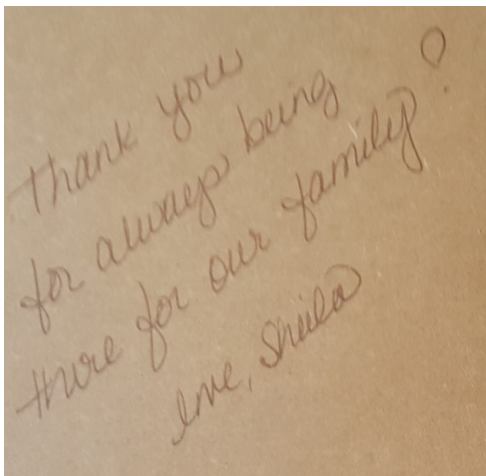 Thank you
for always being
there for our family!
love, Sheila